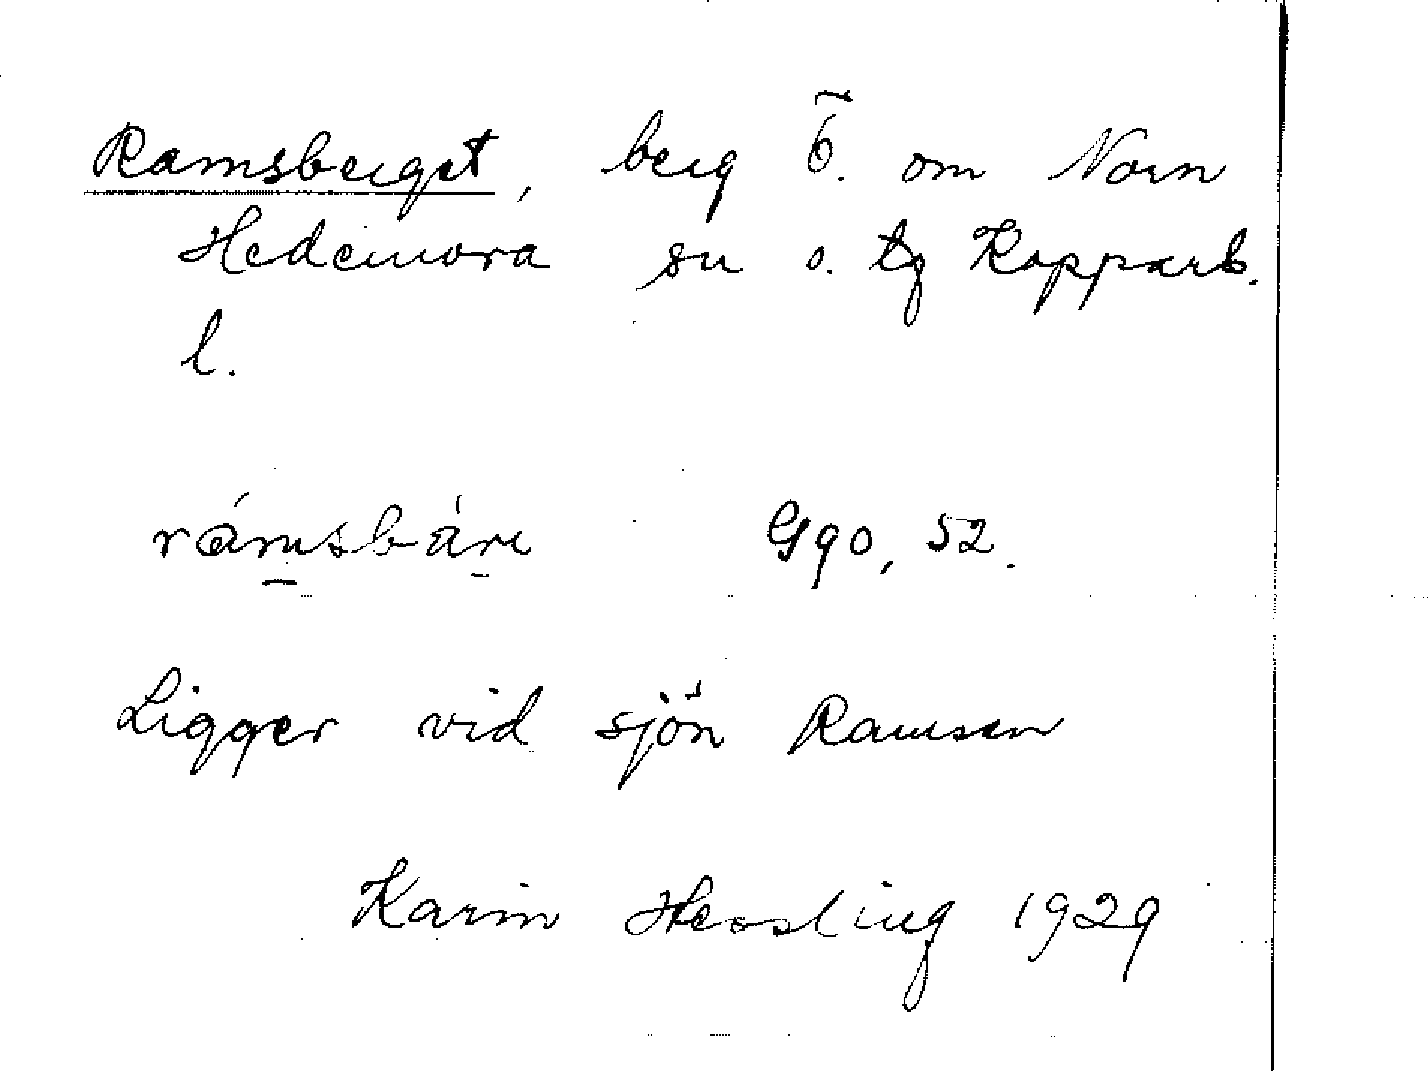 Ramsberget, berg Ö. om Norn
Hedemora sn o. tg Kopparb.
l.
rámsbári G90, 52.
Ligger vid sjön Ramsen
Karin Hessling 1929